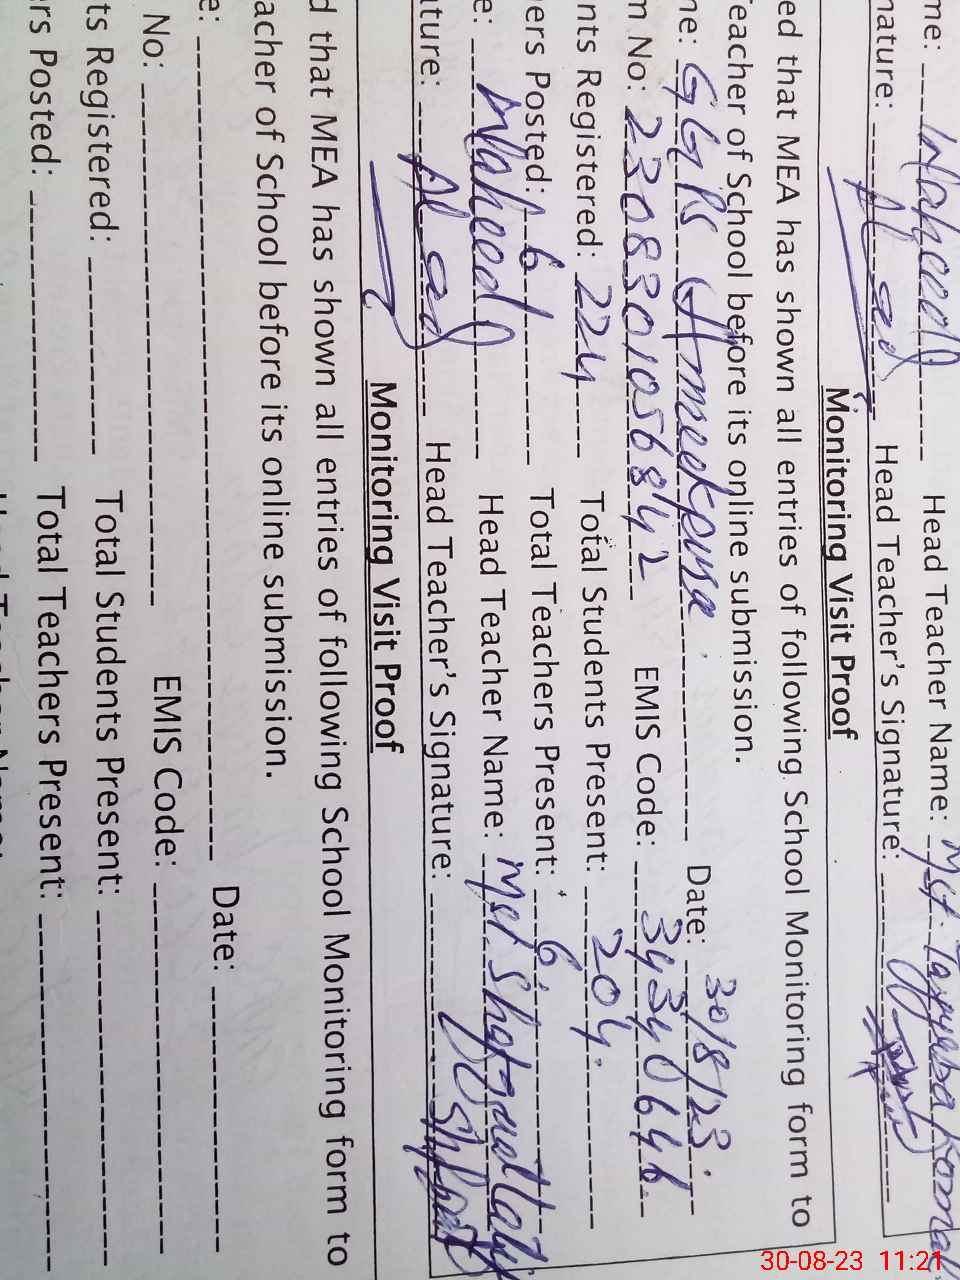 me: Waheed Head Teacher Name: Mst. Tayyeba Komal
nature: Head Teacher's Signature:
Monitoring Visit Proof
ed that MEA has shown all entries of following School Monitoring form to
Teacher of School before its online submission.
ne: GGPS Date: 30/8/23
m No: 23083010568442 EMIS Code: 34340646
nts Registered: 224 Total Students Present: 204
ers Posted: 6 Total Teachers Present: 6
e: Waheed Head Teacher Name: Mst
ature: Head Teacher's Signature:
Monitoring Visit Proof
d that MEA has shown all entries of following School Monitoring form to
acher of School before its online submission.
e: Date:
No: EMIS Code:
ts Registered: Total Students Present:
ers Posted: Total Teachers Present:
30-08-23 11:21